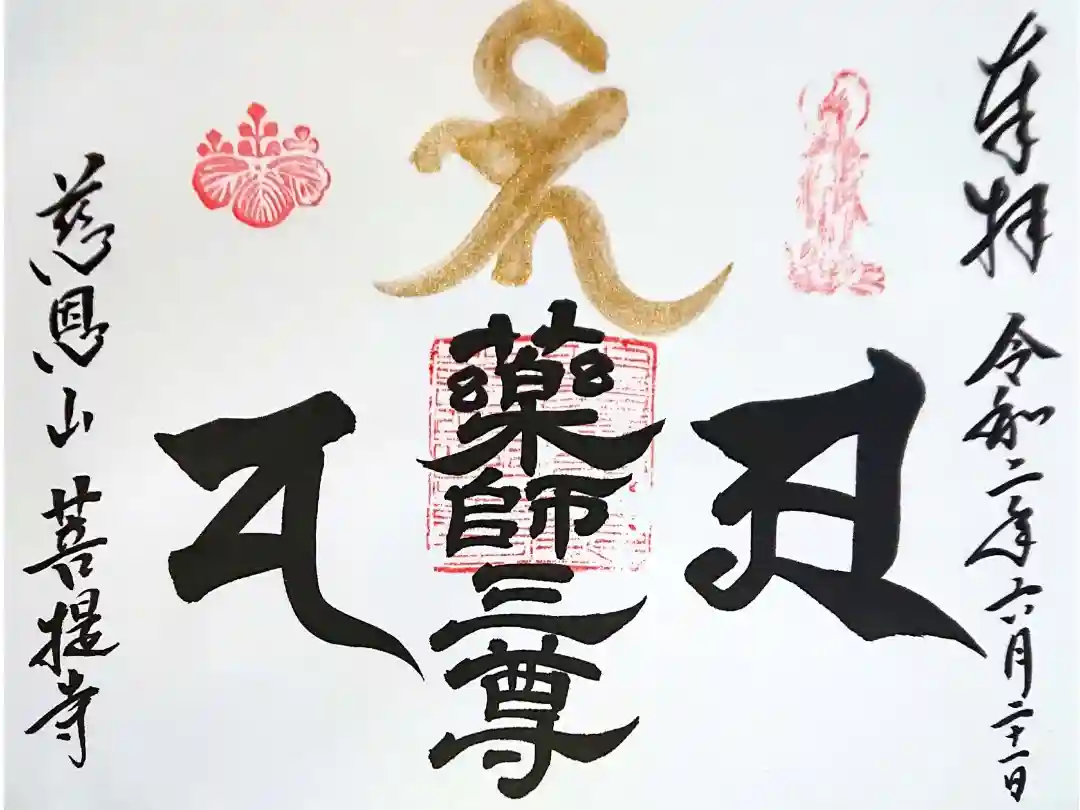 奉拝 令和二年六月二十一日
藥師三尊
慈恩山 菩提寺